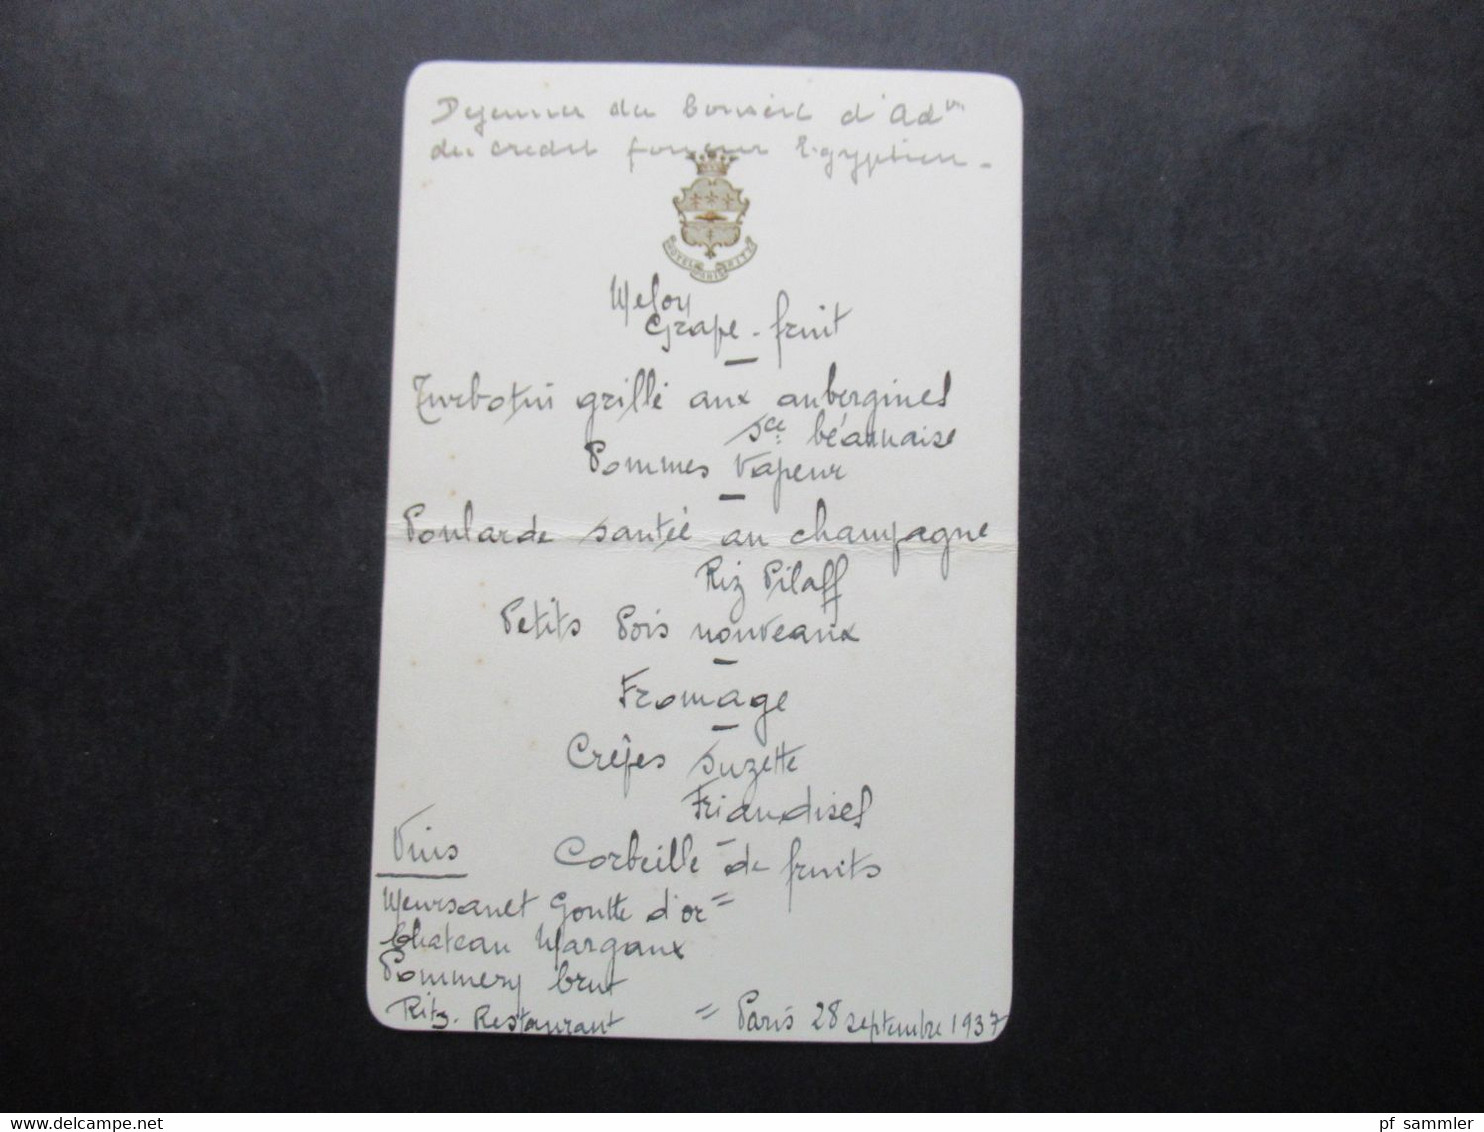 Dejeuner du Conseil d'Adon
du credit foncier Egyptien -
HOTEL RITZ
PARIS
Melon
Grape-fruit
Turbotin grillé aux aubergines
sce béarnaise
Pommes Vapeur
Poularde sautée au champagne
Riz Pilaff
Petits Pois nouveaux
Fromage
Crêpes Suzette
Friandises
Corbeille de fruits
Vins
Meursault Goutte d'or =
Chateau Margaux
Pommery brut
Ritz-Restaurant = Paris 28 septembre 1937
www.delcampe.net
pf_sammler